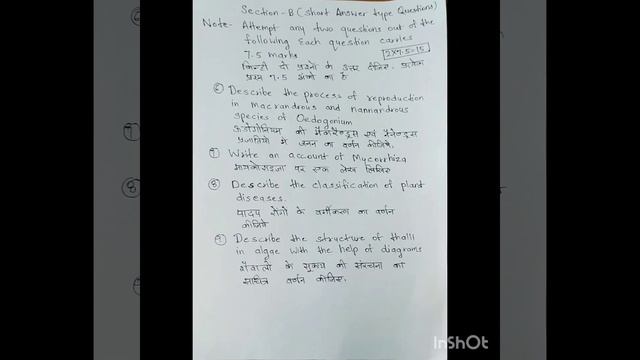 Section-B (Short Answer type Questions)
Note- Attempt any two questions out of the
following Each question carries
7.5 marks 2X7.5=15
किन्ही दो प्रश्नों के उत्तर दीजिए. प्रत्येक
प्रश्न 7.5 अंको का है
⑥ Describe the process of reproduction
in macrandrous and nannandrous
species of Oedogonium
ऊडोगोनियम की मैक्रेन्ड्रस एवं नैनेन्ड्रस
प्रजातियो में जनन का वर्णन कीजिये.
⑦ Write an account of Mycorrhiza
मायकोराइजा पर एक लेख लिखिए
⑧ Describe the classification of plant
diseases.
पादप रोगो के वर्गीकरण का वर्णन
कीजिये
⑨ Describe the structure of thalli
in algae with the help of diagrams
शैवालो के सुकाय की संरचना का
सचित्र वर्णन कीजिए.
InShOt